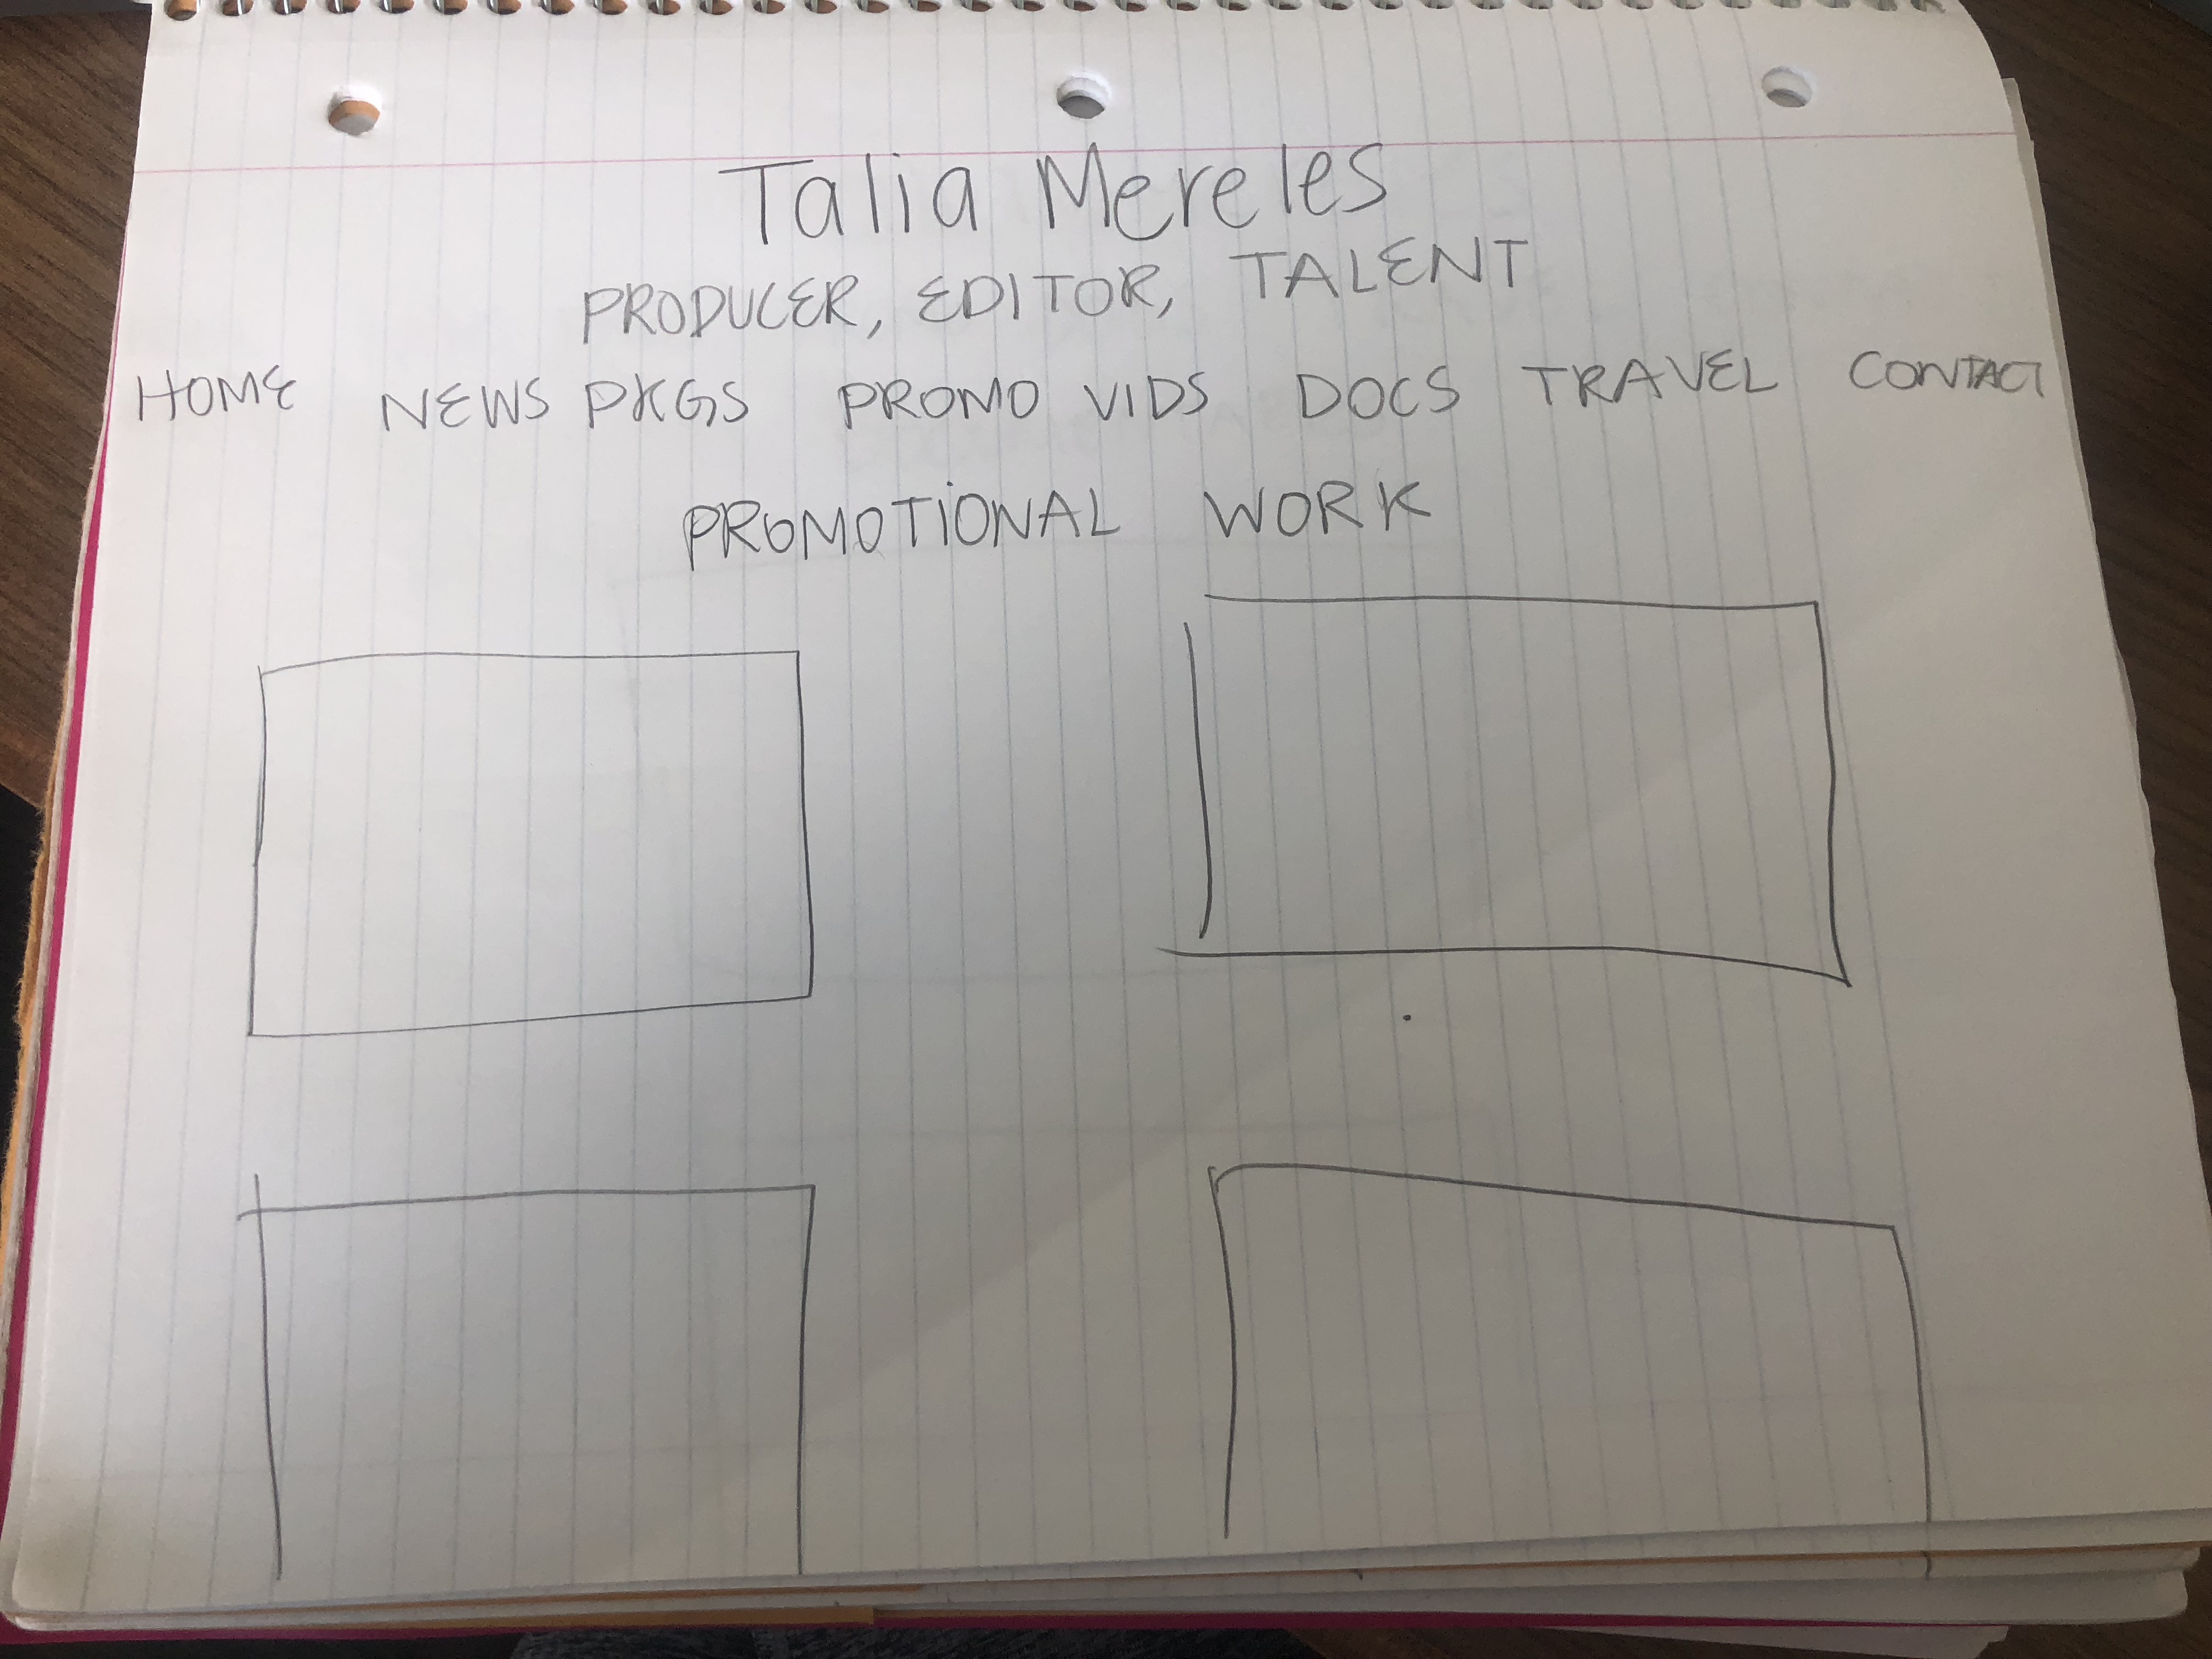 Talia Mereles
PRODUCER, EDITOR, TALENT
HOME NEWS PKGS PROMO VIDS DOCS TRAVEL CONTACT
PROMOTIONAL WORK